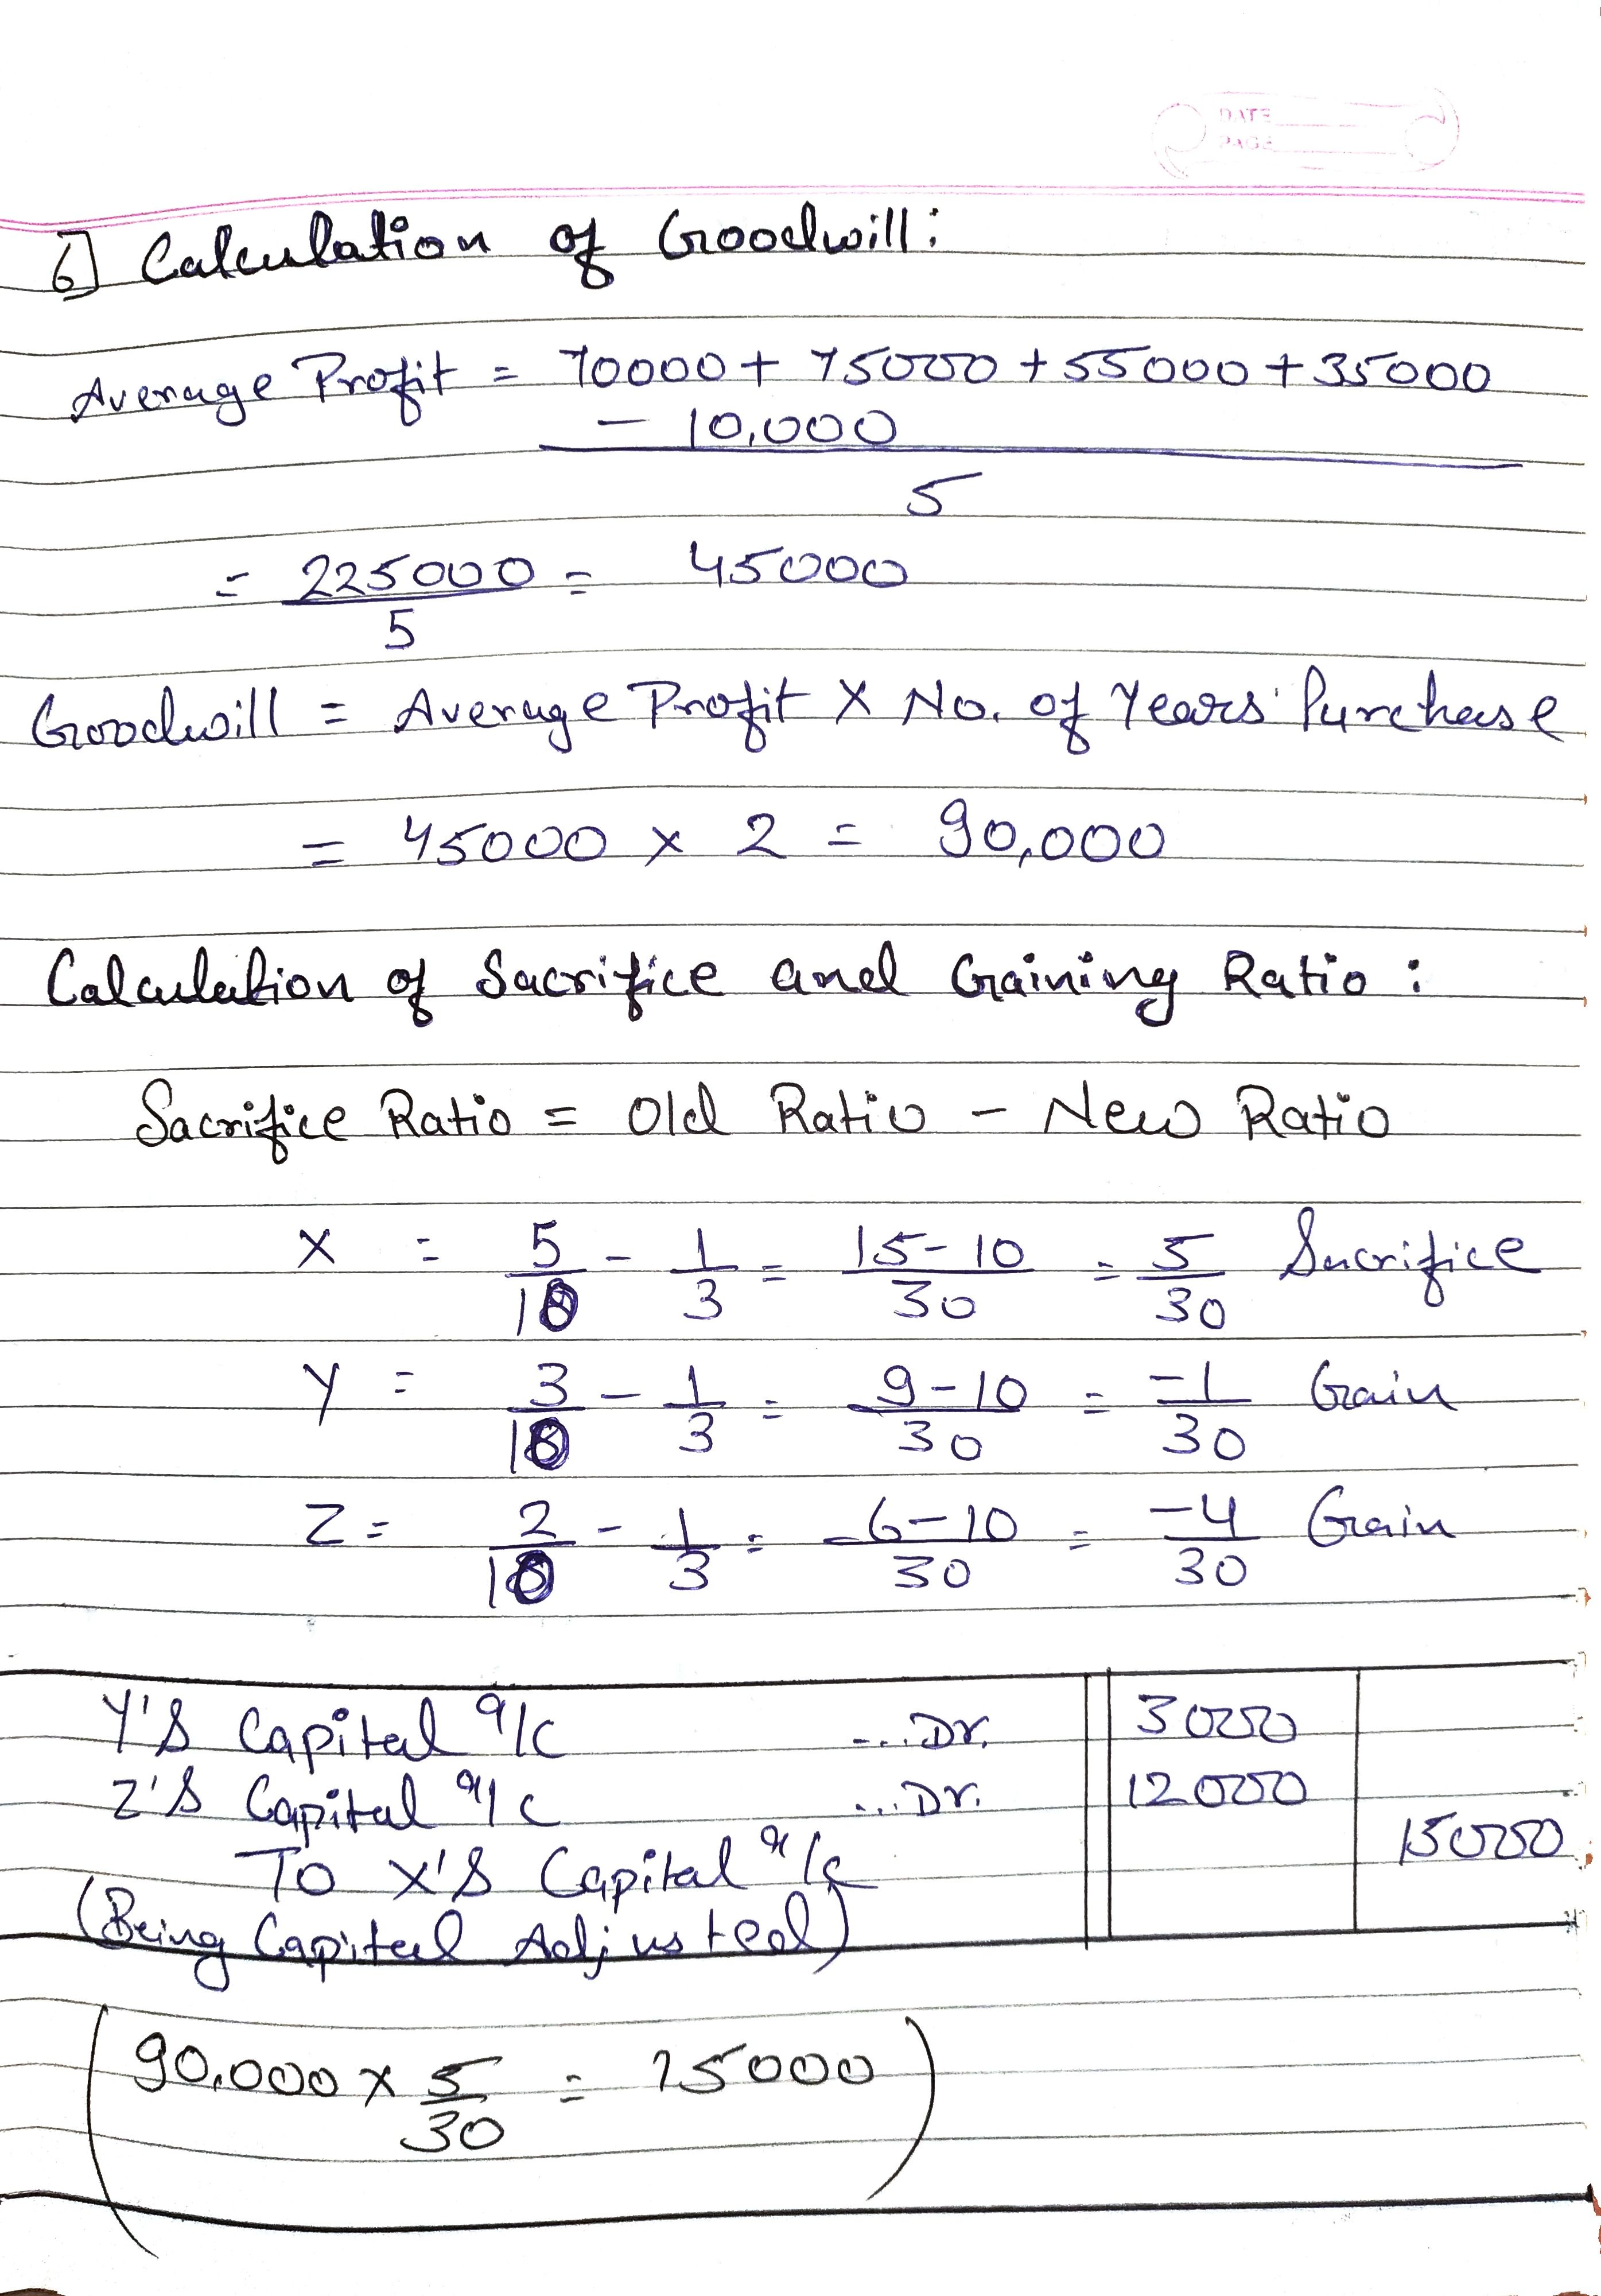 DATE
PAGE
6] Calculation of Goodwill:
Average Profit = 70000 + 75000 + 55000 + 35000
- 10,000
5
= 225000 = 45000
5
Goodwill = Average Profit X No. of Years' Purchase
= 45000 x 2 = 90,000
Calculation of Sacrifice and Gaining Ratio :
Sacrifice Ratio = Old Ratio - New Ratio
X = 5/10 - 1/3 = 15-10/30 = 5/30 Sacrifice
Y = 3/10 - 1/3 = 9-10/30 = -1/30 Gain
Z = 2/10 - 1/3 = 6-10/30 = -4/30 Gain
Y's Capital a/c ...Dr. 3000
Z's Capital a/c ...Dr. 12000
To X's Capital a/c 15000
(Being Capital Adjusted)
(90,000 x 5/30 = 15000)